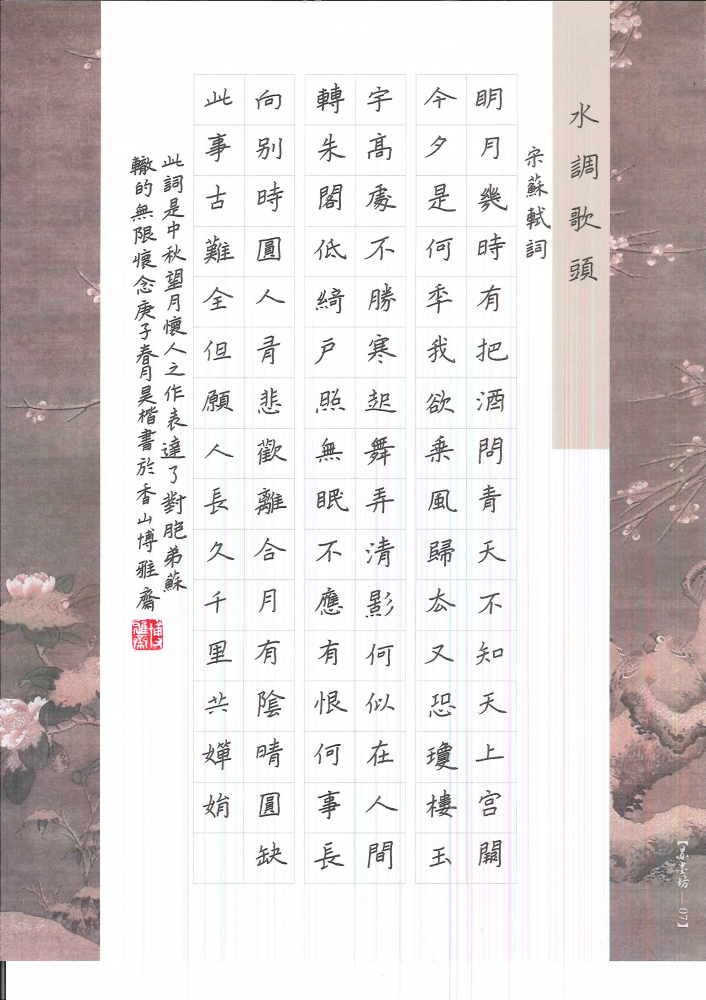 水調歌頭
宋蘇軾詞
明月幾時有把酒問青天不知天上宮闕
今夕是何年我欲乘風歸去又恐瓊樓玉
宇高處不勝寒起舞弄清影何似在人間
轉朱閣低綺戶照無眠不應有恨何事長
向别時圓人有悲歡離合月有陰晴圓缺
此事古難全但願人長久千里共嬋娟
此詞是中秋望月懷人之作表達了對胞弟蘇
轍的無限懷念庚子春月昊楷書於香山博雅齋
博雅齋
墨坊 07